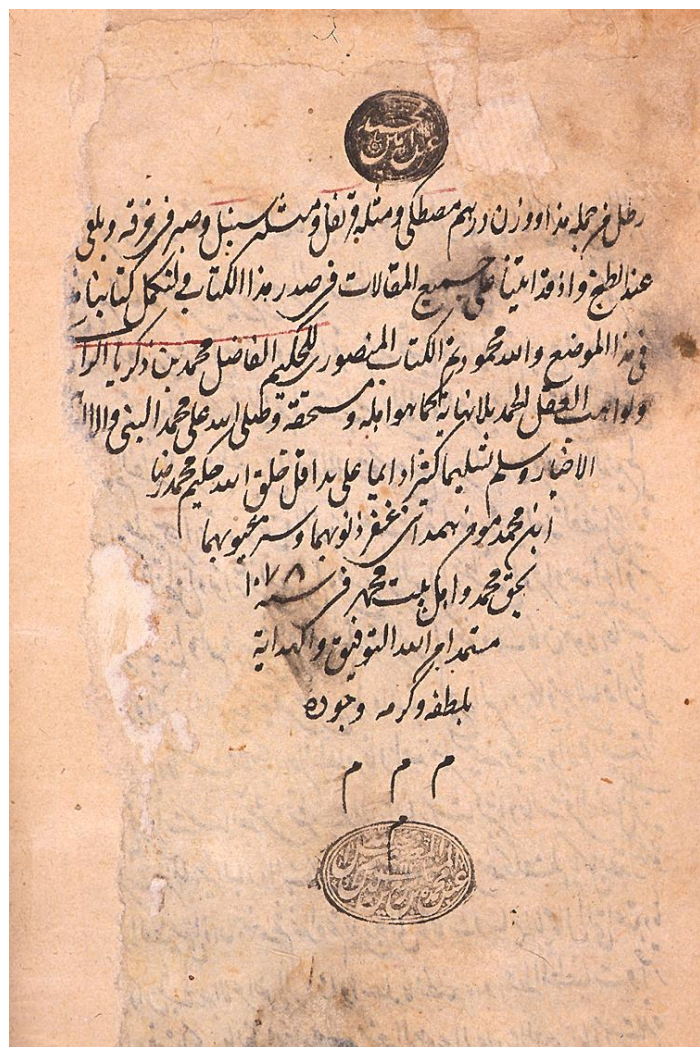 رطل من جمله هذا ووزن درهم مصطكى ومثله قرنفل ومثله سنبل وصير فى خرقه ويلقى
عند الطبخ واذ قد اتينا على جميع المقالات فى صدر هذا الكتاب فلنكمل كتابنا
فى هذا الموضع والله محمود تم الكتاب المنصورى للحكيم الفاضل محمد بن زكريا
ولواهب العقل الحمد بلانهاية كما هو اهله ومستحقه وصلى الله على محمد النبى واله
الاخيار وسلم تسليما كثيرا دايما على يد اقل خلق الله حكيم محمد رضا
ابن محمد مومن همدانى غفر ذنوبهما وستر عيوبهما
بحق محمد واهل بيت محمد فى سنه ١٠٧٨
مستمدا من الله التوفيق والهداية
بلطفه وكرمه وجوده
م م م
م